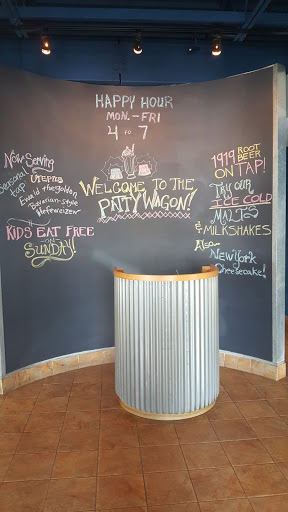 HAPPY HOUR
MON.-FRI
4 TO 7
WELCOME TO THE
PATTY WAGON!
Now Serving
Seasonal
Tap
UTEPILS
Ewald the golden
Bavarian-style
Hefeweizen
KIDS EAT FREE
ON
SUNDAY!
1919 ROOT
BEER
ON TAP!
TRY OUR
ICE COLD
MALTS
& MILKSHAKES
Also
New York
Cheesecake!